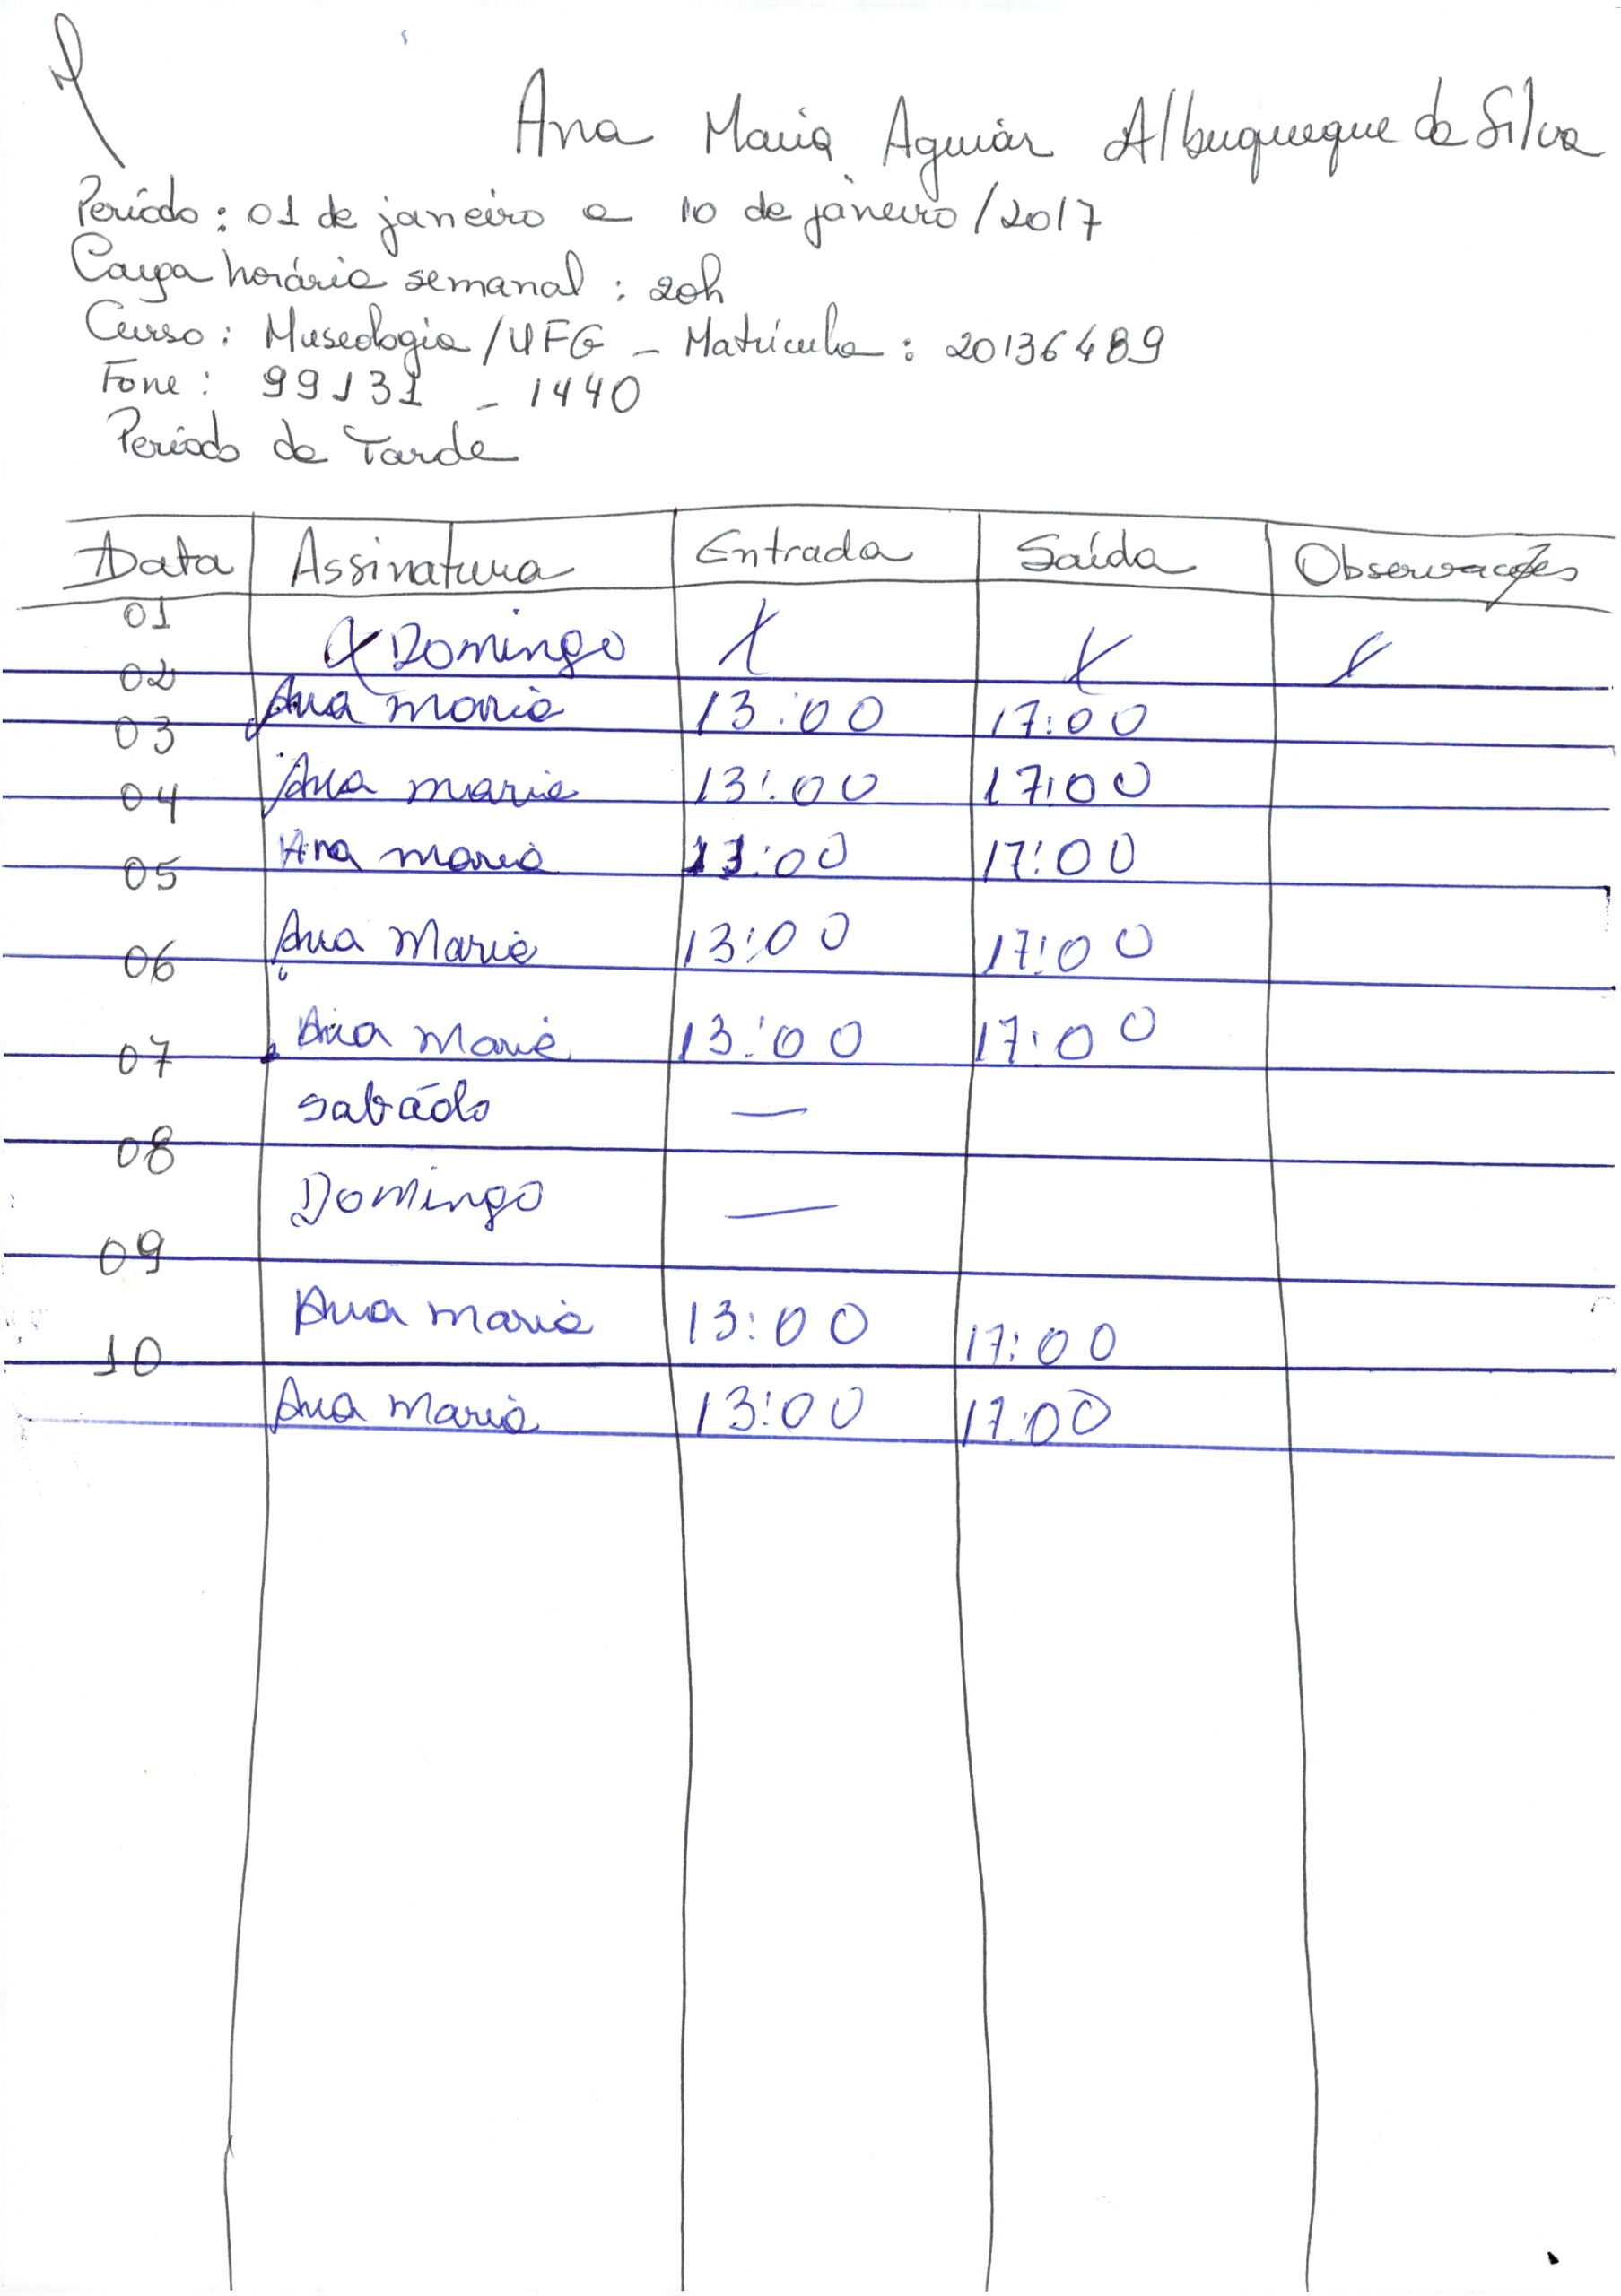 Ana Maria Aguiar Albuquerque da Silva
Período: 01 de janeiro a 10 de janeiro/2017
Carga horária semanal: 20h
Curso: Museologia/UFG - Matrícula: 20136489
Fone: 99131 - 1440
Período da Tarde
Data Assinatura Entrada Saída Observações
01 X Domingo X X X
02 Ana maria 13:00 17:00
03 Ana maria 13:00 17:00
04 Ana maria 13:00 17:00
05 Ana Maria 13:00 17:00
06 Ana Maria 13:00 17:00
07 sabádo —
08 Domingo —
09 Ana maria 13:00 17:00
10 Ana Maria 13:00 17:00